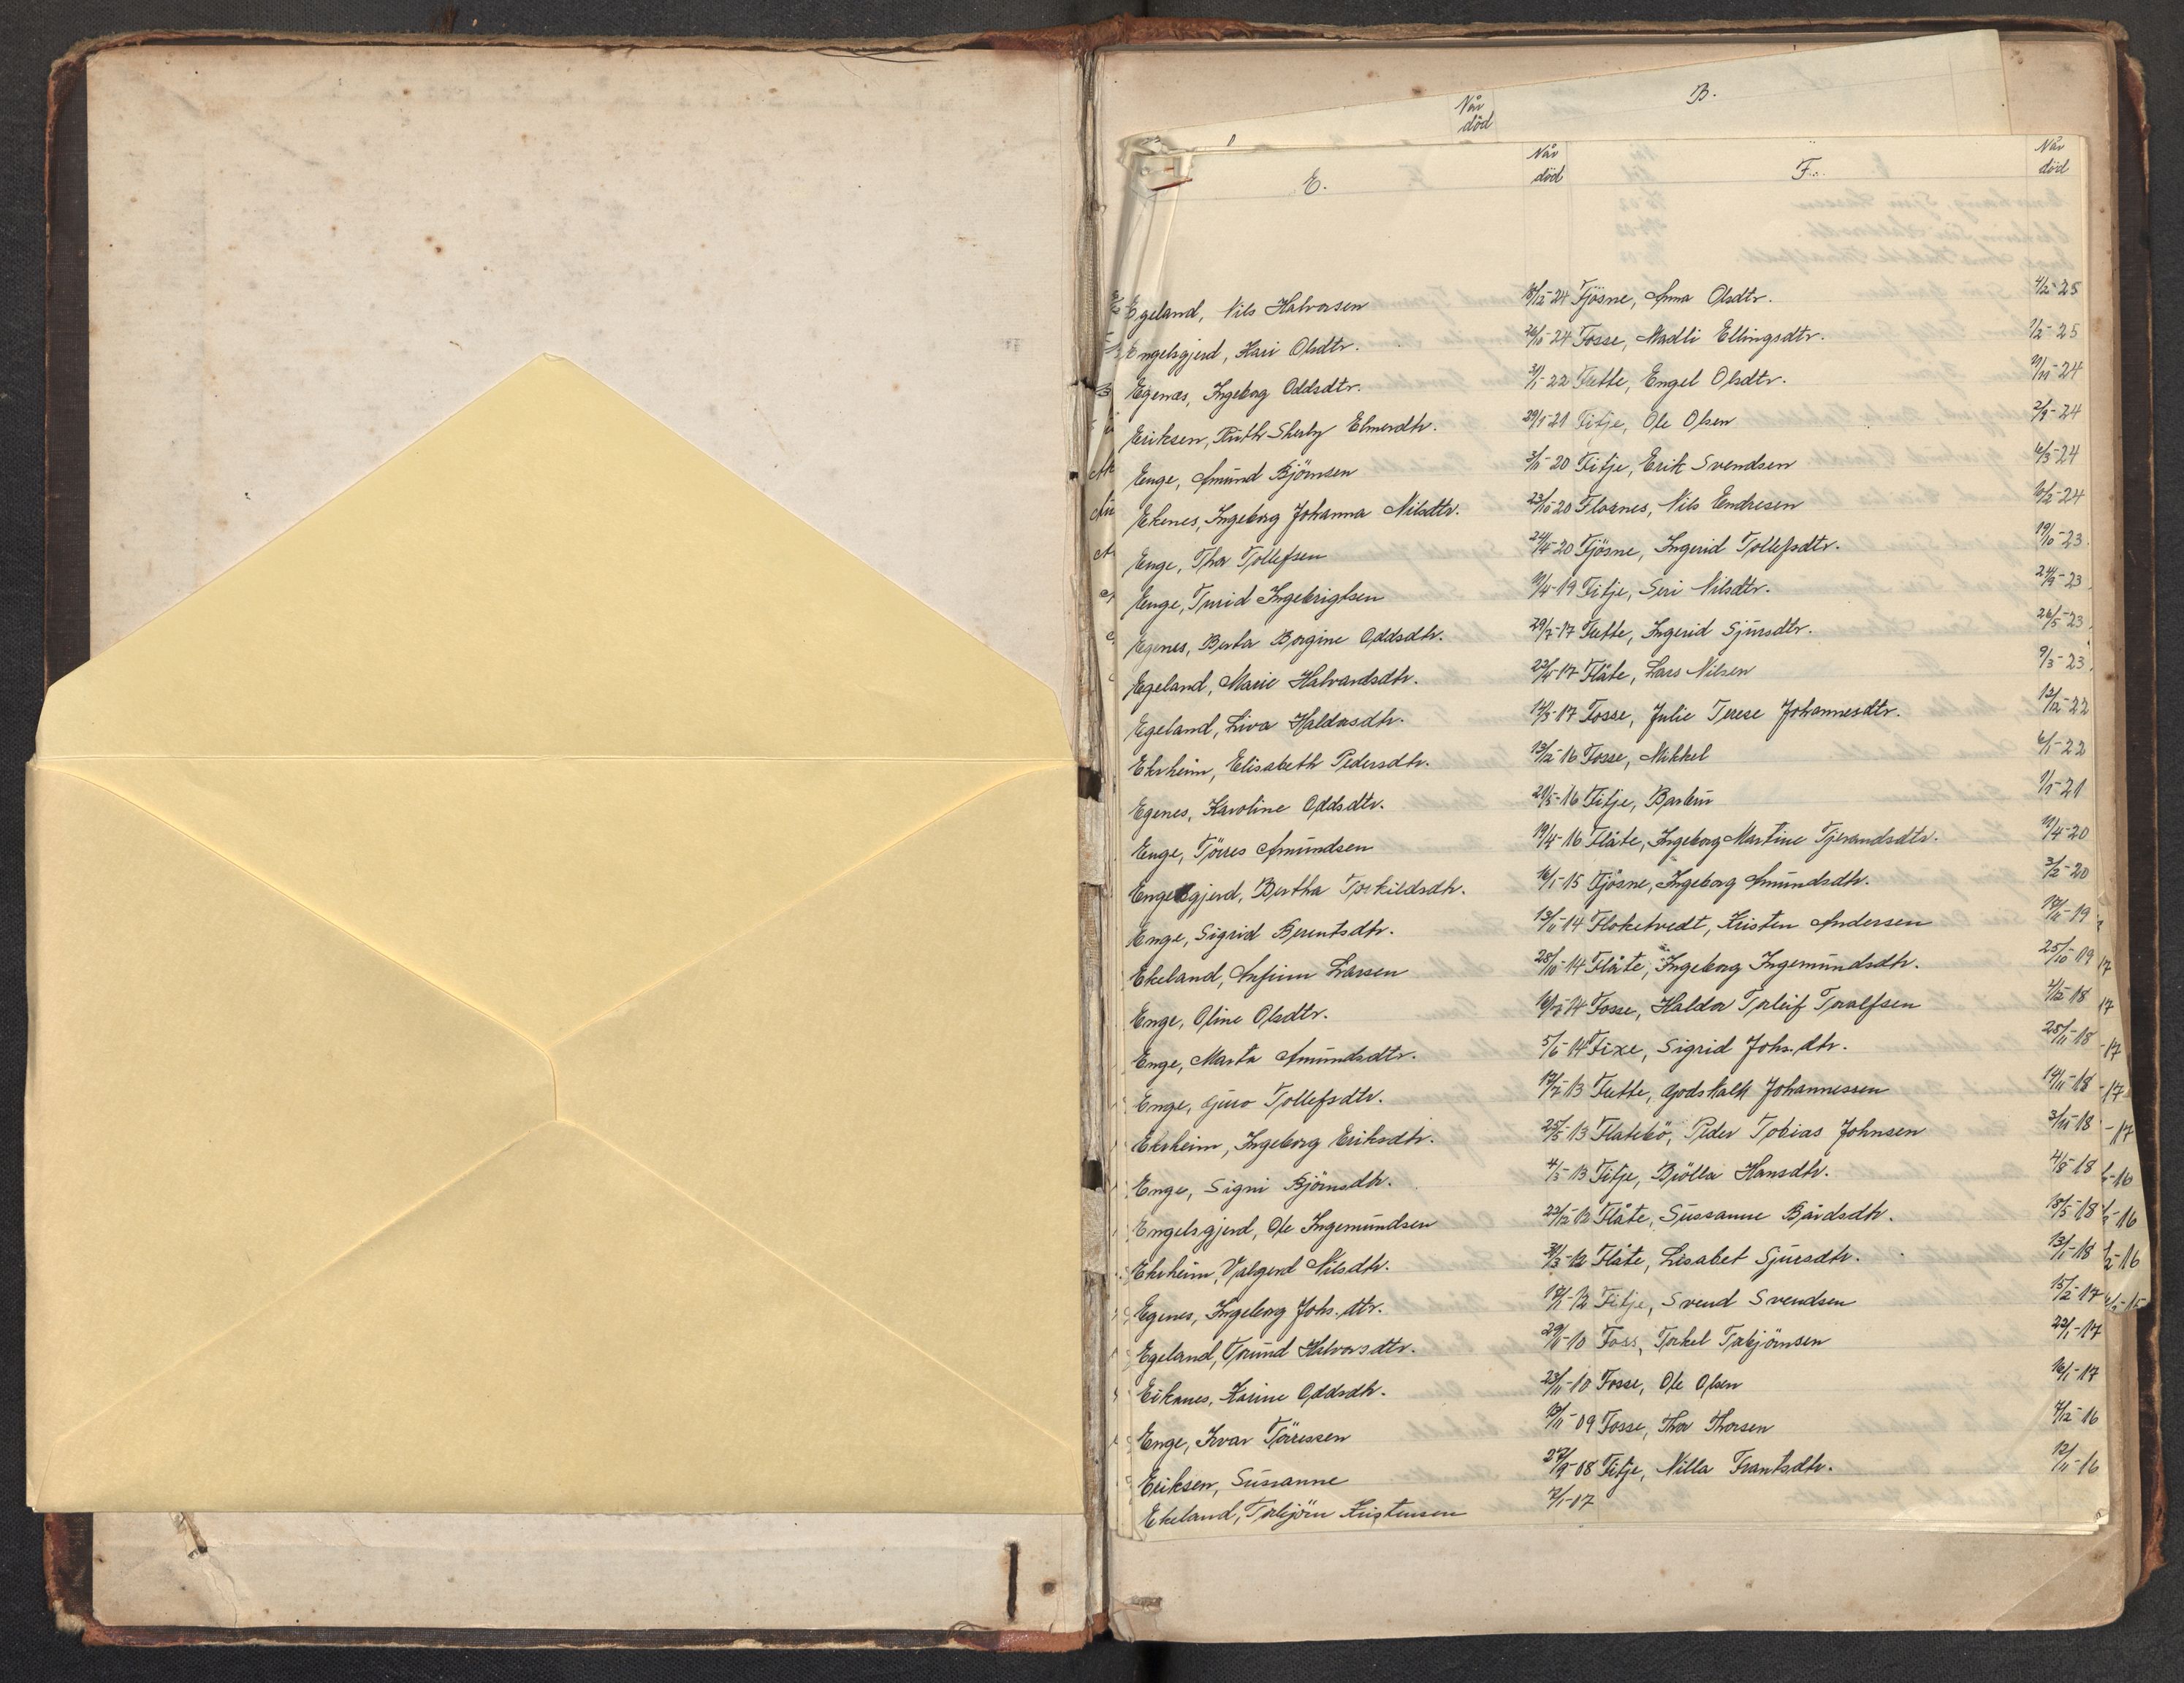 B.
Når
död
E.
Når
död
F.
Når
död
Egeland, Nils Halvorsen 18/12-24 Fjösne, Anna Olsdtr. 4/2-25
Engelsgjerd, Kari Olsdtr. 26/10-24 Fosse, Madli Ellingsdtr. 1/2-25
Egenæs, Ingeborg Oddsdtr. 31/1-22 Futte, Engel Olsdtr. 11/11-24
Eriksen, Ruth Sherly Elmerdtr. 29/1-21 Fitje, Ole Olsen 2/9-24
Enge, Amund Björnsen -20 Fitje, Erik Svendsen 6/3-24
Ekenes, Ingeborg Johanna Nilsdtr. 23/10-20 Flosnes, Nils Endresen 10/2-24
Enge, Thor Tollefsen 24/4-20 Fjösne, Ingerid Tollefsdtr. 19/10-23
Enge, Turid Ingebrigtsen 11/4-19 Fitje, Seri Nilsdtr. 24/9-23
Egenes, Berta Borgine Oddsdtr. 29/7-17 Futte, Ingerid Sjursdtr. 26/5-23
Egeland, Marie Halvardsdtr. 22/4-17 Flåte, Lars Nilsen 9/3-23
Egeland, Liva Haldorsdtr. 14/3-17 Fosse, Julie Terese Johannesdtr. 12/12-22
Ekrheim, Elisabeth Pedersdtr. 13/12-16 Fosse, Mikkel 6/1-22
Egenes, Karoline Oddsdtr. 21/5-16 Fitje, Barbru 1/1-21
Enge, Törres Amundsen 19/4-16 Flåte, Ingeborg Martine Tjerandsdtr. 11/4-20
Engelsgjerd, Bertha Torkildsdtr. 16/1-15 Fjösne, Ingeborg Amundsdtr. 3/2-20
Enge, Sigrid Berentsdtr. 13/11-14 Floketvedt, Kristen Andersen 12/11-19
Ekeland, Anfinn Larsen 28/10-14 Flåte, Ingeborg Ingemundsdtr. 25/10-19
Enge, Oline Olsdtr. 16/7-14 Fosse, Haldor Torleif Toralfsen 2/12-18
Enge, Marta Amundsdtr. 5/6-14 Fixe, Sigrid Johs.dtr. 25/11-18
Enge, Guro Tollefsdtr. 17/7-13 Futte, Godskalk Johannessen 14/11-18
Ekrheim, Ingeborg Eriksdtr. 25/5-13 Flatebö, Peder Tobias Johnsen 3/11-18
Enge, Signi Björnsdtr. 4/5-13 Fitje, Brölla Hansdtr. 4/8-18
Engelsgjerd, Ole Ingemundsen 22/12-12 Flåte, Sussanne Bårdsdtr. 18/5-18
Ekrheim, Valgerd Nilsdtr. 31/3-12 Flåte, Lisabet Sjursdtr. 13/1-18
Egenes, Ingeborg Johs.dtr. 18/1-12 Fitje, Svend Svendsen 15/2-17
Egeland, Torund Halvorsdtr. 29/11-10 Foss, Torkel Torbjörnsen 22/1-17
Eikenes, Karine Oddsdtr. 23/11-10 Fosse, Ole Olsen 16/1-17
Enge, Ivar Törressen 13/11-09 Fosse, Thor Thorsen 7/12-16
Eriksen, Sussanne 27/9-08 Fitje, Nilla Frantsdtr. 12/11-16
Ekeland, Torbjörn Kristensen 2/1-07